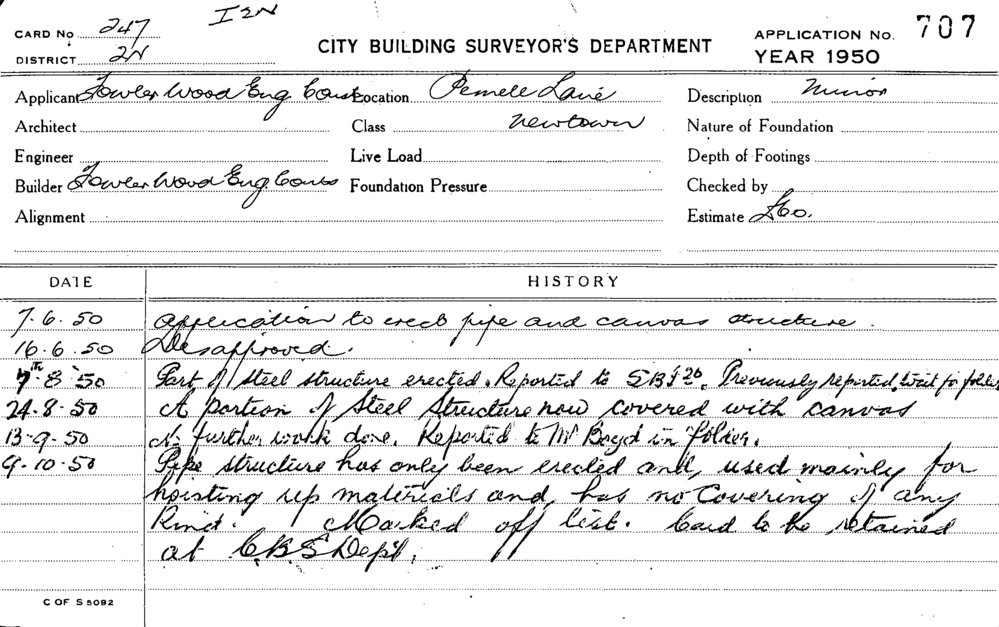 I2N
CARD No 247
DISTRICT 2N
CITY BUILDING SURVEYOR'S DEPARTMENT
APPLICATION No. 707
YEAR 1950
Applicant Fowler Wood Eng Cons Location Pemell Lane Description Minor
Architect Class Newtown Nature of Foundation
Engineer Live Load Depth of Footings
Builder Fowler Wood Eng. Cons Foundation Pressure Checked by
Alignment Estimate £60.
DATE HISTORY
7.6.50 Application to erect pipe and canvas structure.
16.6.50 Disapproved.
7th 8 50 Part of steel structure erected. Reported to SBI 20. Previously reported, wait for folder
24.8.50 A portion of Steel Structure now covered with canvas
13-9.50 No further work done. Reported to Mr Boyd in folder.
9.10.50 Pipe structure has only been erected and, used mainly for
hoisting up materials and, has no covering of any
Kind. Marked off list. Card to be retained
at C.B.S Dept.
C OF S 5092